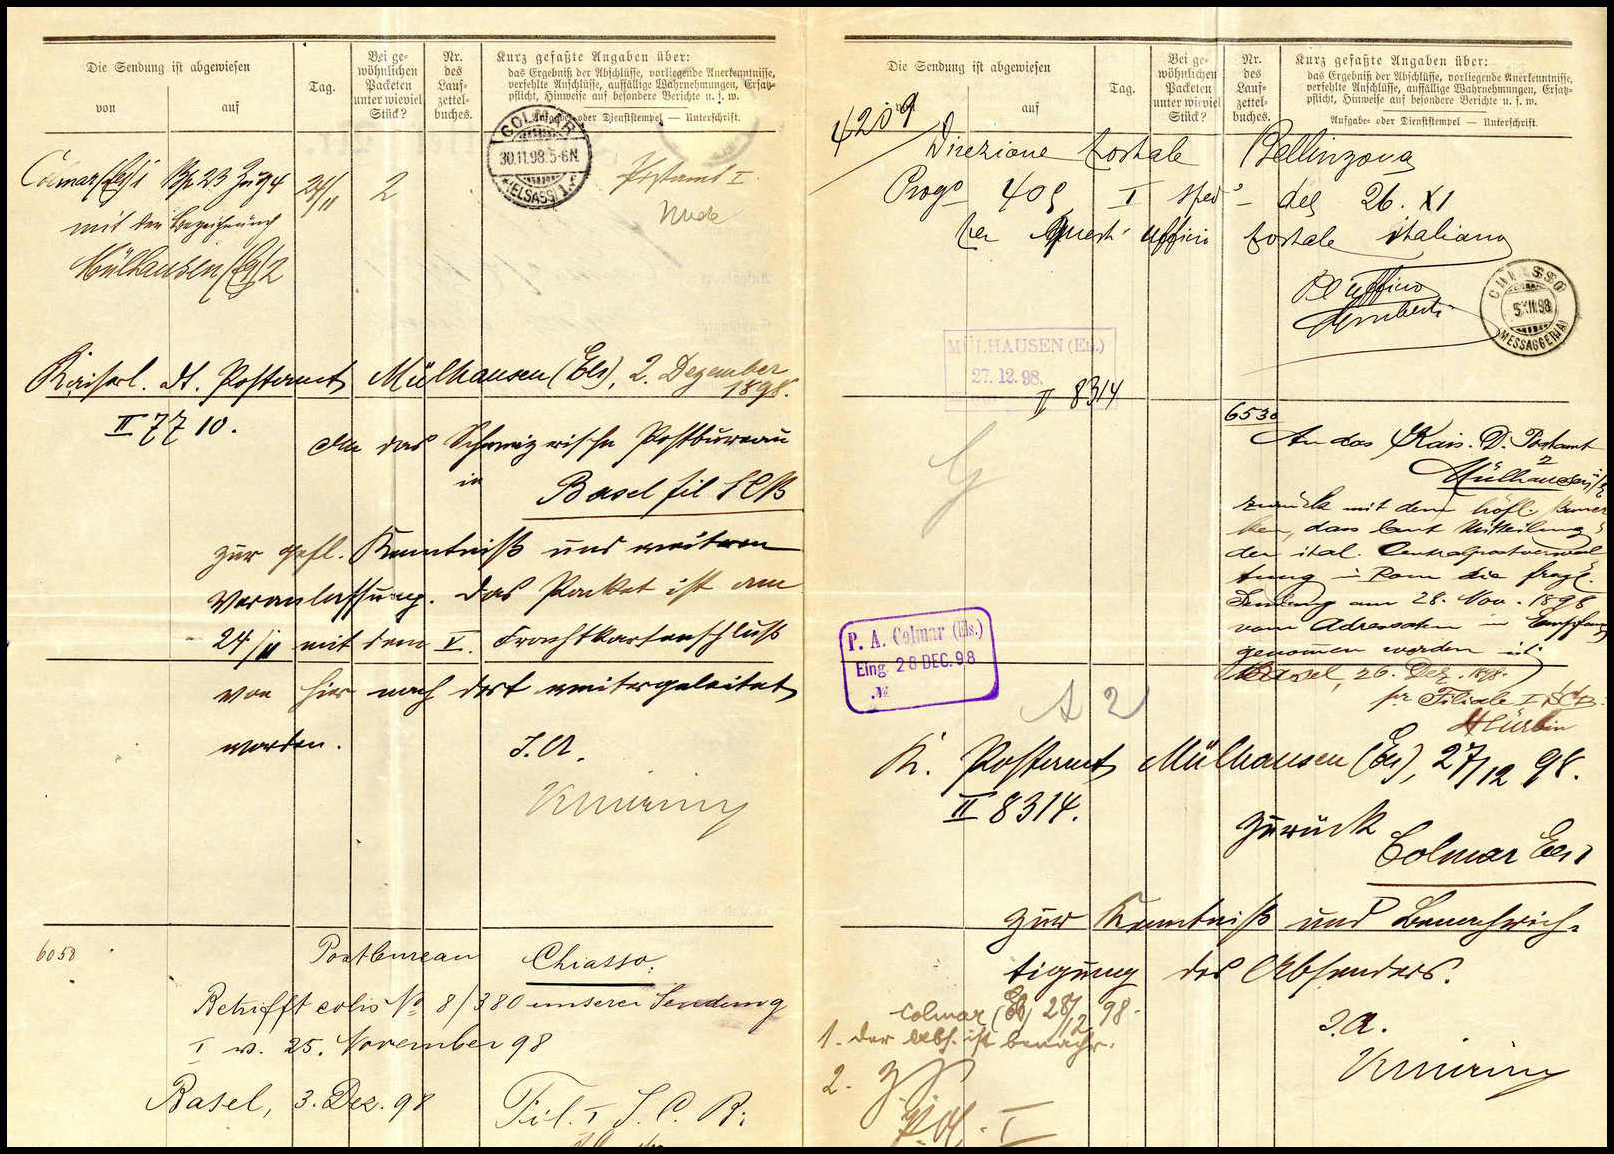 Die Sendung ist abgewiesen
von
auf
Tag.
Bei ge-
wöhnlichen
Packeten
unter wieviel
Stück?
Nr.
des
Lauf-
zettel-
buches.
Kurz gefaßte Angaben über:
das Ergebniß der Abschlüsse, vorliegende Anerkenntnisse,
verfehlte Anschlüsse, auffällige Wahrnehmungen, Ersatz-
pflicht, Hinweise auf besondere Berichte u. s. w.
Aufgabe- oder Dienststempel — Unterschrift.
COLMAR
30.11.98.5-6N.
(ELSASS) 1.
Colmar (Els) 1 Bp 23 Zug 4
24/11
2
Postamt I.
mit der Bezeichnung
Mülhausen (Els) 2
Kaiserl. dt. Postamt Mülhausen (Els), 2. Dezember
1898.
II 7710.
An das Schweizerische Postbureau
in
Basel fil
zur gefl. Kenntniß und weiteren
Veranlassung. Das Packet ist am
24/11 mit dem V. Frachtkartenschluß
von hier nach dort weitergeleitet
worden.
I. A.
6058
Postbureau Chiasso.
Betrifft colis No 8/380 unserer Sendung
I v. 25. November 98
Basel, 3. Dez. 98
Fil. I
Die Sendung ist abgewiesen
auf
Tag.
Bei ge-
wöhnlichen
Packeten
unter wieviel
Stück?
Nr.
des
Lauf-
zettel-
buches.
Kurz gefaßte Angaben über:
das Ergebniß der Abschlüsse, vorliegende Anerkenntnisse,
verfehlte Anschlüsse, auffällige Wahrnehmungen, Ersatz-
pflicht, Hinweise auf besondere Berichte u. s. w.
Aufgabe- oder Dienststempel — Unterschrift.
4209
Direzione postale Bellinzona
Progo 409 I sped. del 26. XI
per quest' Ufficio postale italiano
CHIASSO
5.XII.98
MESSAGGERIA
MÜLHAUSEN (Els.)
27.12.98.
II 8314
6530
An das Kais. D. Postamt
2
Mülhausen
zurück mit dem höfl. Bemer
ken, dass laut Mittheilung
der ital. Centralpostverwal
tung in Rom die fragl.
Sendung am 28. Nov. 1898
vom Adressaten in Empfang
genommen worden ist.
Basel, 26. Dez. 1898.
pr Filiale I
P. A. Colmar (Els.)
Eing. 28 DEC. 98
№
A 2
K. Postamt Mülhausen (Els), 27/12 98.
II 8314.
Zurück
Colmar Els 1
zur Kenntniß und Benachrich-
tigung des Absenders.
Colmar (Els) 28/12 98.
1. Der Abs. ist benachr.
2.
I. A.